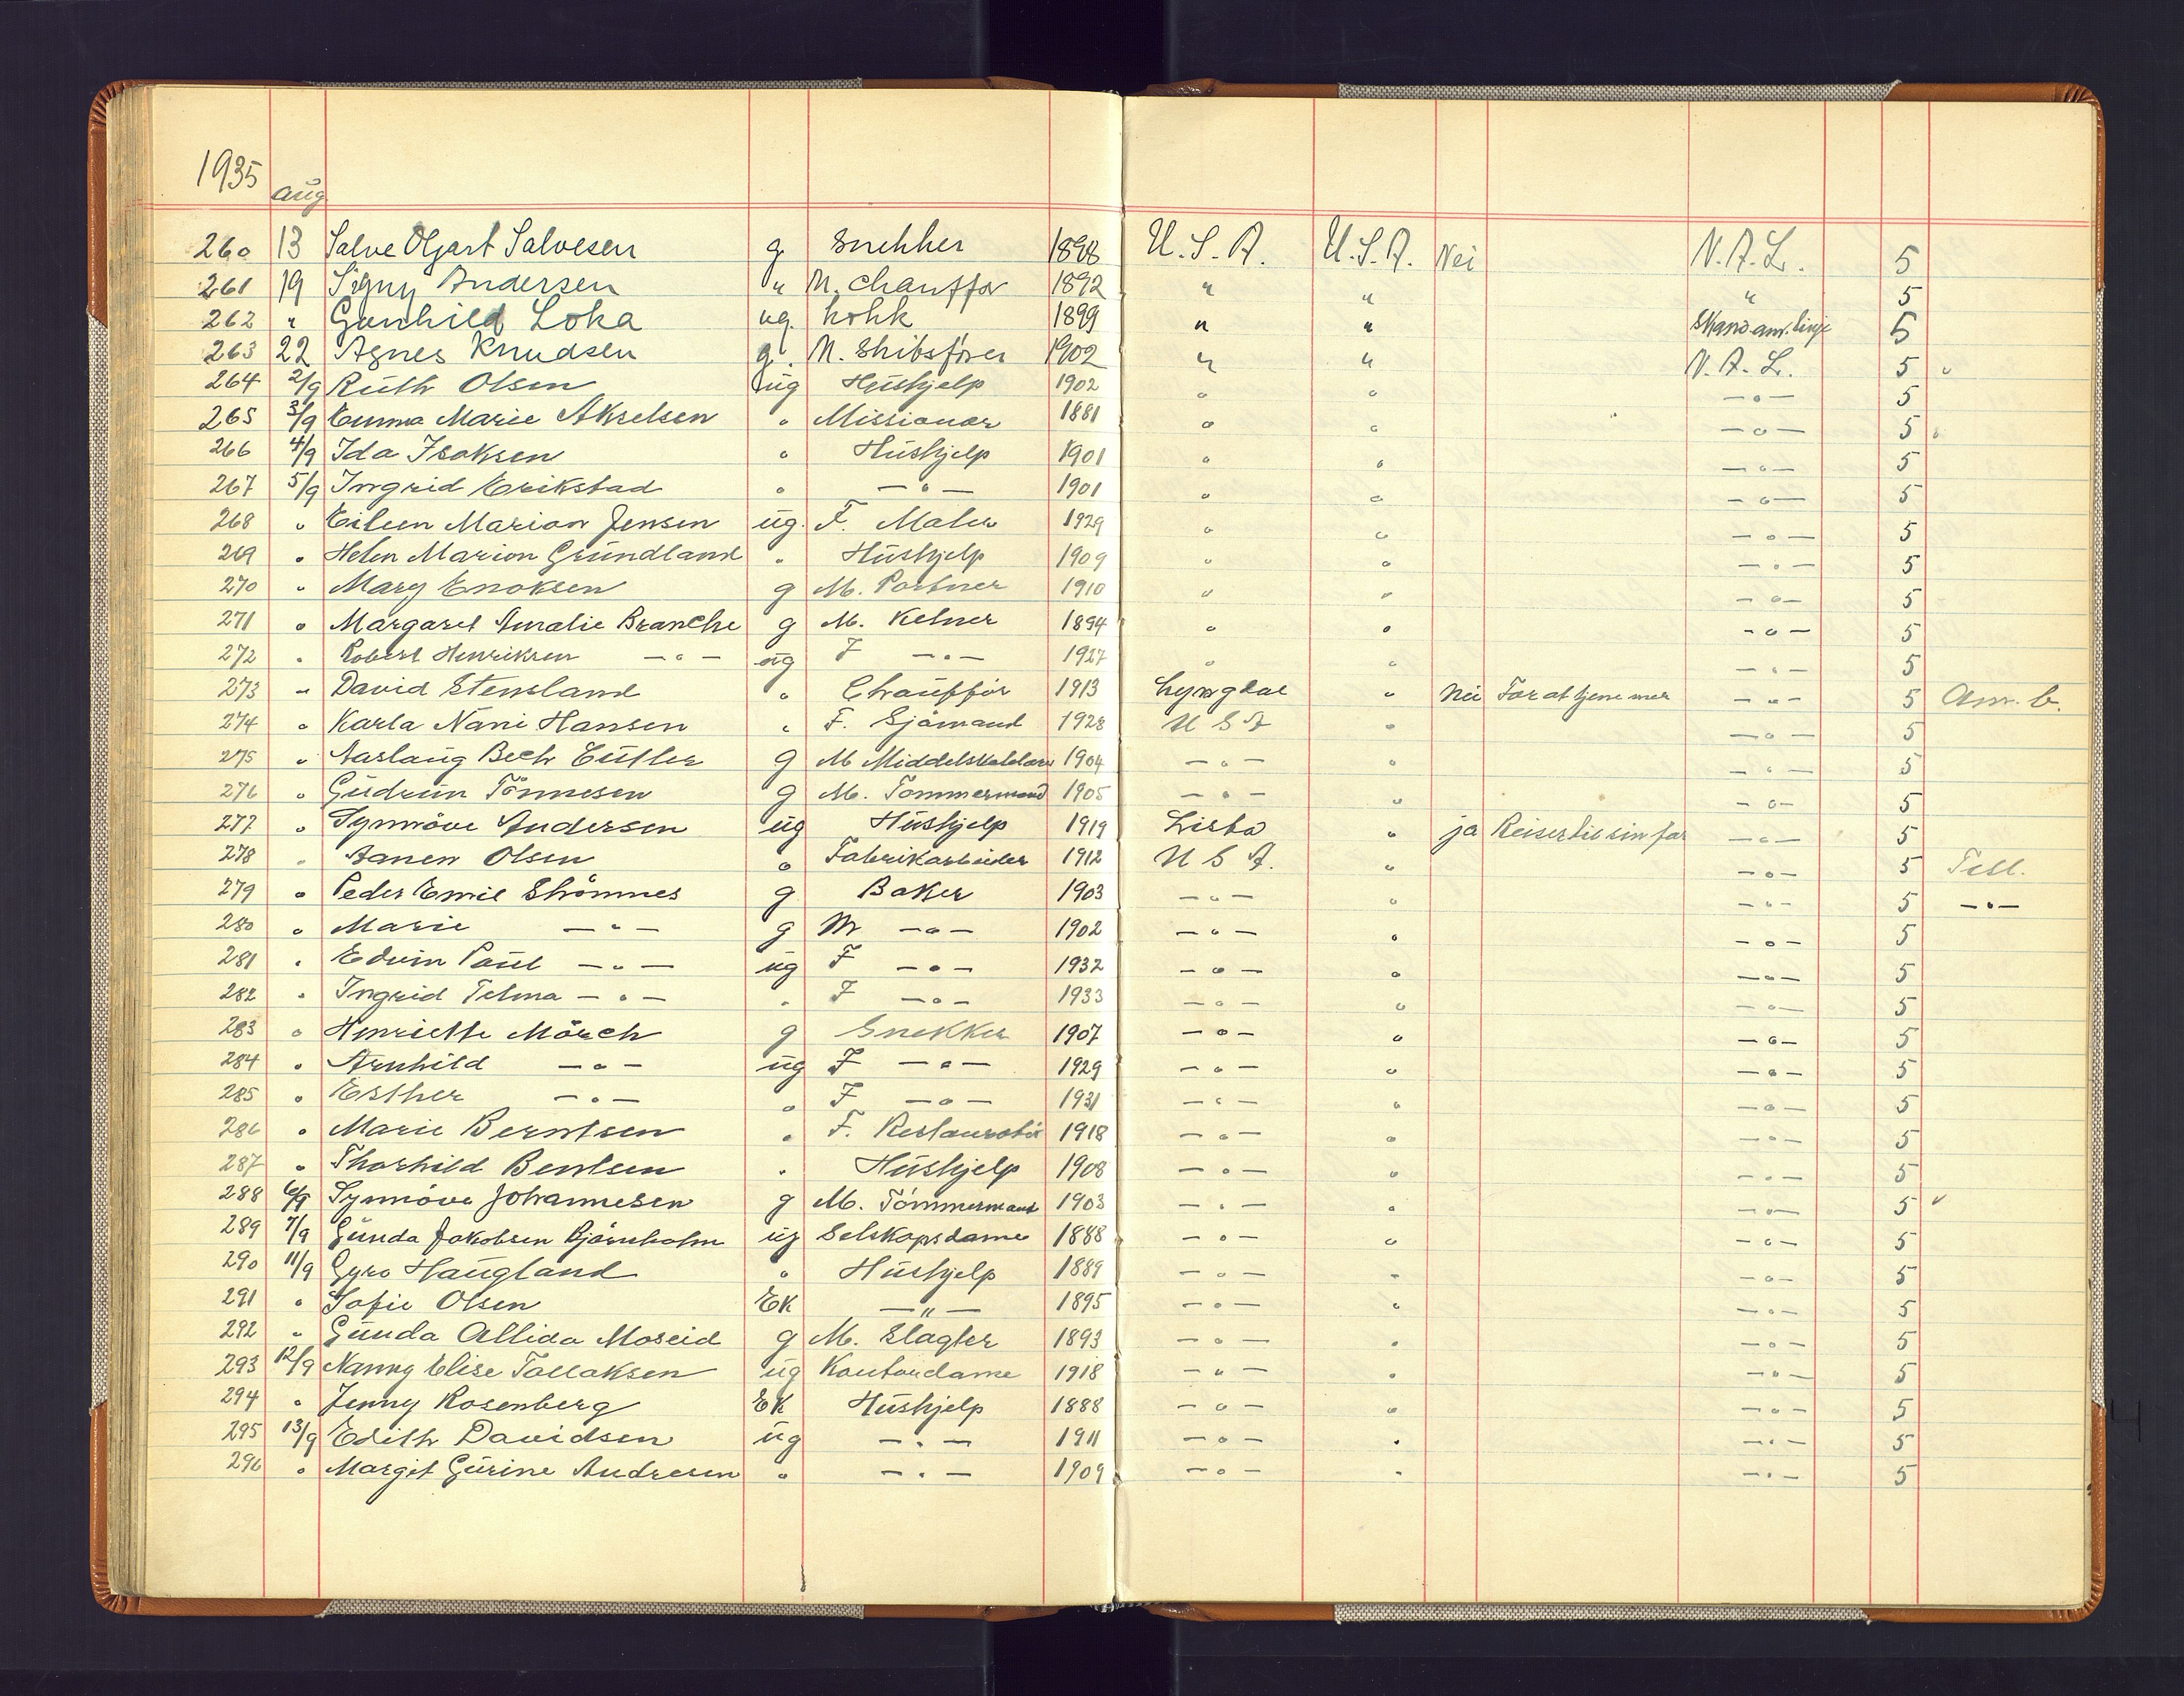 1935 aug
260 13 Salve Oljart Salvesen g Snekker 1898 U.S.A. U.S.A. Nei N.A.L. 5
261 19 Signy Andersen " M. Chauffør 1892 " " " 5
262 " Gunhild Loka ug. kokk 1899 " " Skand. am. linje 5
263 22 Agnes Knudsen g. M. Skibsfører 1902 " " N.A.L. 5 "
264 2/9 Ruth Olsen ug Hushjelp 1902 " " —"— 5
265 3/9 Emma Marie Akselsen " Missionær 1881 " " —"— 5 "
266 4/9 Ida Isaksen " Hushjelp 1901 " " —"— 5
267 5/9 Ingrid Erikstad " —"— 1901 " " —"— 5
268 " Eileen Marion Jensen ug. F. Maler 1929 " " —"— 5
269 " Helen Marion Grundland " Hushjelp 1909 " " —"— 5
270 " Mary Enoksen g M. Portner 1910 " " —"— 5
271 " Margaret Amalie Branche g M. Kelner 1894 " " —"— 5
272 " Robert Henriksen —"— ug F —"— 1927 " " —"— 5
273 " David Stensland " Chauffør 1913 Lyngdal " Nei For at tjene mer —"— 5 Am. b.
274 " Karla Nani Hansen " F. Sjömand 1928 U S A " —"— 5
275 " Aaslaug Bech Cutler g M 1904 —"— " —"— 5
276 " Gudrun Tönnesen g M. Tömmermand 1905 —"— " —"— 5
277 " Synnöve Andersen ug Hushjelp 1919 Lista " ja Reiser til sin far —"— 5
278 " Aanen Olsen " Fabrikarbeider 1912 U S A. " —"— 5 Till.
279 " Peder Emil Strömnes g Baker 1903 —"— " —"— 5 —"—
280 " Marie —"— g M —"— 1902 —"— " —"— 5
281 " Edvin Paul —"— ug F —"— 1932 —"— " —"— 5
282 " Ingrid Telma —"— " F —"— 1933 —"— " —"— 5
283 " Henriette Mörch g Snekker 1907 —"— " —"— 5
284 " Arnhild —"— ug F —"— 1929 —"— " —"— 5
285 " Esther —"— " F —"— 1931 —"— " —"— 5
286 " Marie Berntsen " F. 1918 —"— " —"— 5
287 " Thorhild Bentsen " Hushjelp 1908 —"— " —"— 5
288 6/9 Synnöve Johannesen g M. Tömmermand 1903 —"— " —"— 5 "
289 7/9 Gunda Jakobsen Bjørnholm ug Selskapsdame 1888 —"— " —"— 5
290 11/9 Gyro Haugland " Hushjelp 1889 —"— " —"— 5
291 " Sofie Olsen EK —"— 1895 —"— " —"— 5
292 " Gunda Allida Moseid g M. Slagter 1893 —"— " —"— 5
293 12/9 Nanny Elise Tallaksen ug Kontordame 1918 —"— " —"— 5
294 " Jenny Rosenberg EK Hushjelp 1888 —"— " —"— 5
295 13/9 Edith Davidsen ug —"— 1911 —"— " —"— 5
296 " Margit Gurine Andresen " —"— 1909 —"— " —"— 5